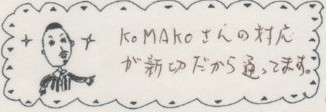 KoMAKoさんの対応
が新切だから通ってます。